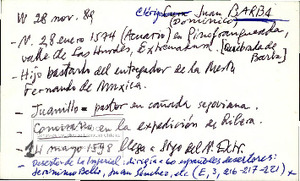 W 28 nov. 89 Juan BARBA
(Dominico)
- N. 28 enero 1574 (Acuario) en Pinofranqueado,
valle de Las Hurdes, Extremadura.
- Hijo bastardo del entregador de la Mesta
Fernando de Muxica.
- Juanillo = pastor en cañada segoviana.
- en la expedición de Ribera.
- 14 marzo 1598 llega a Stgo del N. Extr.
- Desertor de la Imperial: dirigía 60 españoles desertores:
Jerónimo Bello, Juan Sánchez, etc (E, 3, 216-217-221)